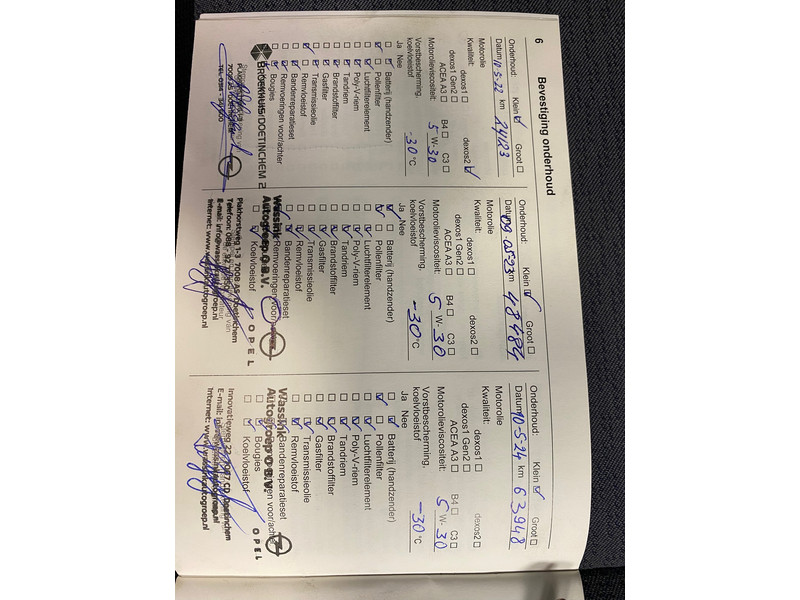 6 Bevestiging onderhoud
Onderhoud: Klein ☑ Groot ☐
Datum 10-5-22 km 24023
Motorolie
Kwaliteit: dexos1 ☐ dexos2 ☑
dexos1 Gen2 ☐
ACEA A3 ☐ B4 ☐ C3 ☐
Motorolieviscositeit: 5 W-30
Vorstbescherming,
koelvloeistof -30 °C
Ja Nee
Batterij (handzender)
Pollenfilter
Luchtfilterelement
Poly-V-riem
Tandriem
Brandstoffilter
Gasfilter
Transmissieolie
Remvloeistof
Bandenreparatieset
Remvoeringen voor/achter
Bougies
BROEKHUIS DOETINCHEM 2
Onderhoud: Klein ☑ Groot ☐
Datum 09-05-23 km 48484
Motorolie
Kwaliteit: dexos1 ☐ dexos2 ☐
dexos1 Gen2 ☐
ACEA A3 ☐ B4 ☐ C3 ☐
Motorolieviscositeit: 5 W-30
Vorstbescherming,
koelvloeistof -30 °C
Ja Nee
Batterij (handzender)
Pollenfilter
Luchtfilterelement
Poly-V-riem
Tandriem
Brandstoffilter
Gasfilter
Transmissieolie
Remvloeistof
Bandenreparatieset
Remvoeringen voor/
Koelvloeistof
Wassink
Autogroep O B.V.
OPEL
Plakhorstweg 1-3 7006 AS Doetinchem
Telefoon:
E-mail:
Internet: www.wassinkautogroep.nl
Onderhoud: Klein ☑ Groot ☐
Datum 10-5-24 km 63.948
Motorolie
Kwaliteit: dexos1 ☐ dexos2 ☐
dexos1 Gen2 ☐
ACEA A3 ☐ B4 ☐ C3 ☐
Motorolieviscositeit: 5 W-30
Vorstbescherming,
koelvloeistof -30 °C
Ja Nee
Batterij (handzender)
Pollenfilter
Luchtfilterelement
Poly-V-riem
Tandriem
Brandstoffilter
Gasfilter
Transmissieolie
Remvloeistof
Bandenreparatieset
voor/achter
Bougies
Koelvloeistof
Wassink
Autogroep O B.V.
OPEL
Innovatieweg 22 CD Doetinchem
E-mail:
Internet: www.wassinkautogroep.nl